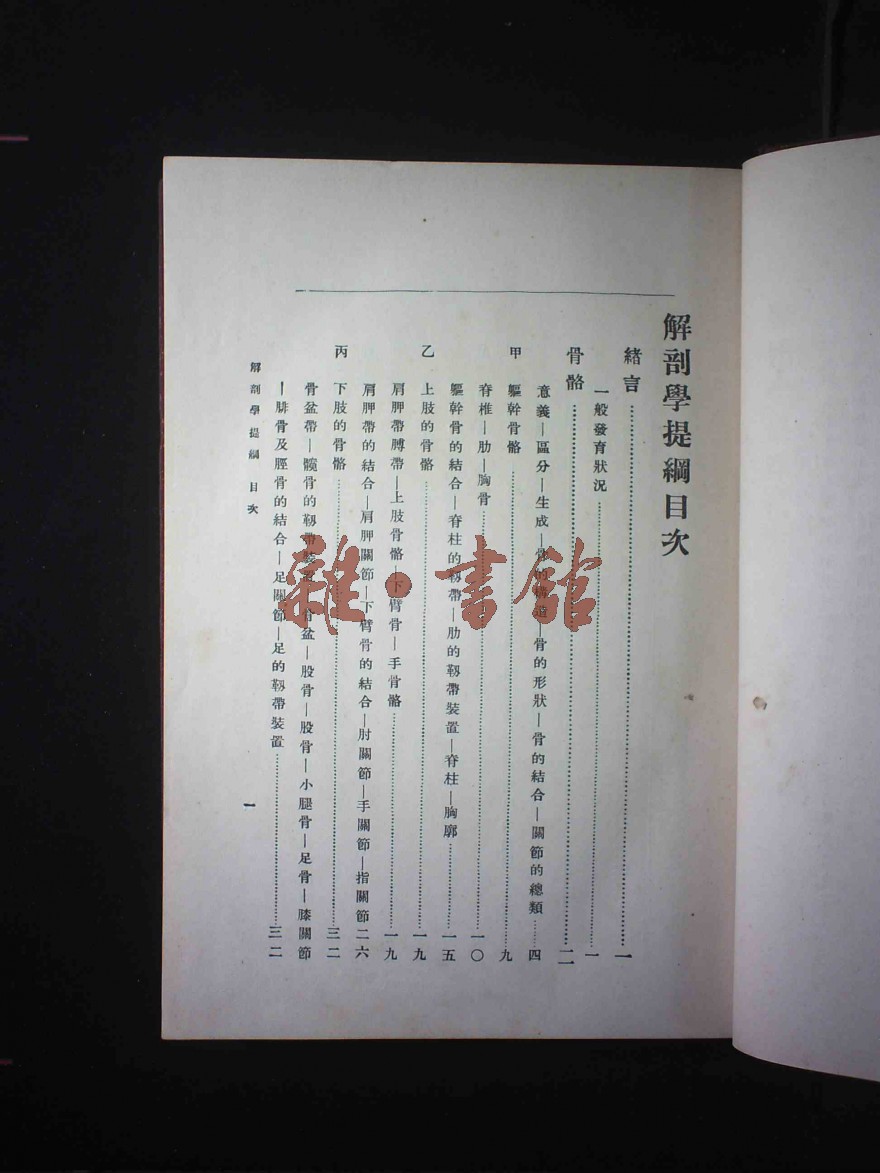 解剖學提綱目次
緒言……一
一般發育狀況……一
骨骼……二
意義—區分—生成—骨的構造—骨的形狀—骨的結合—關節的總類……四
甲 軀幹骨骼……九
脊椎—肋—胸骨……一〇
軀幹骨的結合—脊柱的靱帶—肋的靱帶裝置—脊柱—胸廓……一五
乙 上肢的骨骼……一九
肩胛帶膊帶—上肢骨骼—下臂骨—手骨骼……一九
肩胛帶的結合—肩胛關節—下臂骨的結合—肘關節—手關節—指關節二六
丙 下肢的骨骼……三二
骨盆帶—髖骨的靱帶裝置—骨盆—股骨—股骨—小腿骨—足骨—膝關節
—腓骨及脛骨的結合—足關節—足的靱帶裝置……三二
解剖學提綱 目次
一
雜·書館